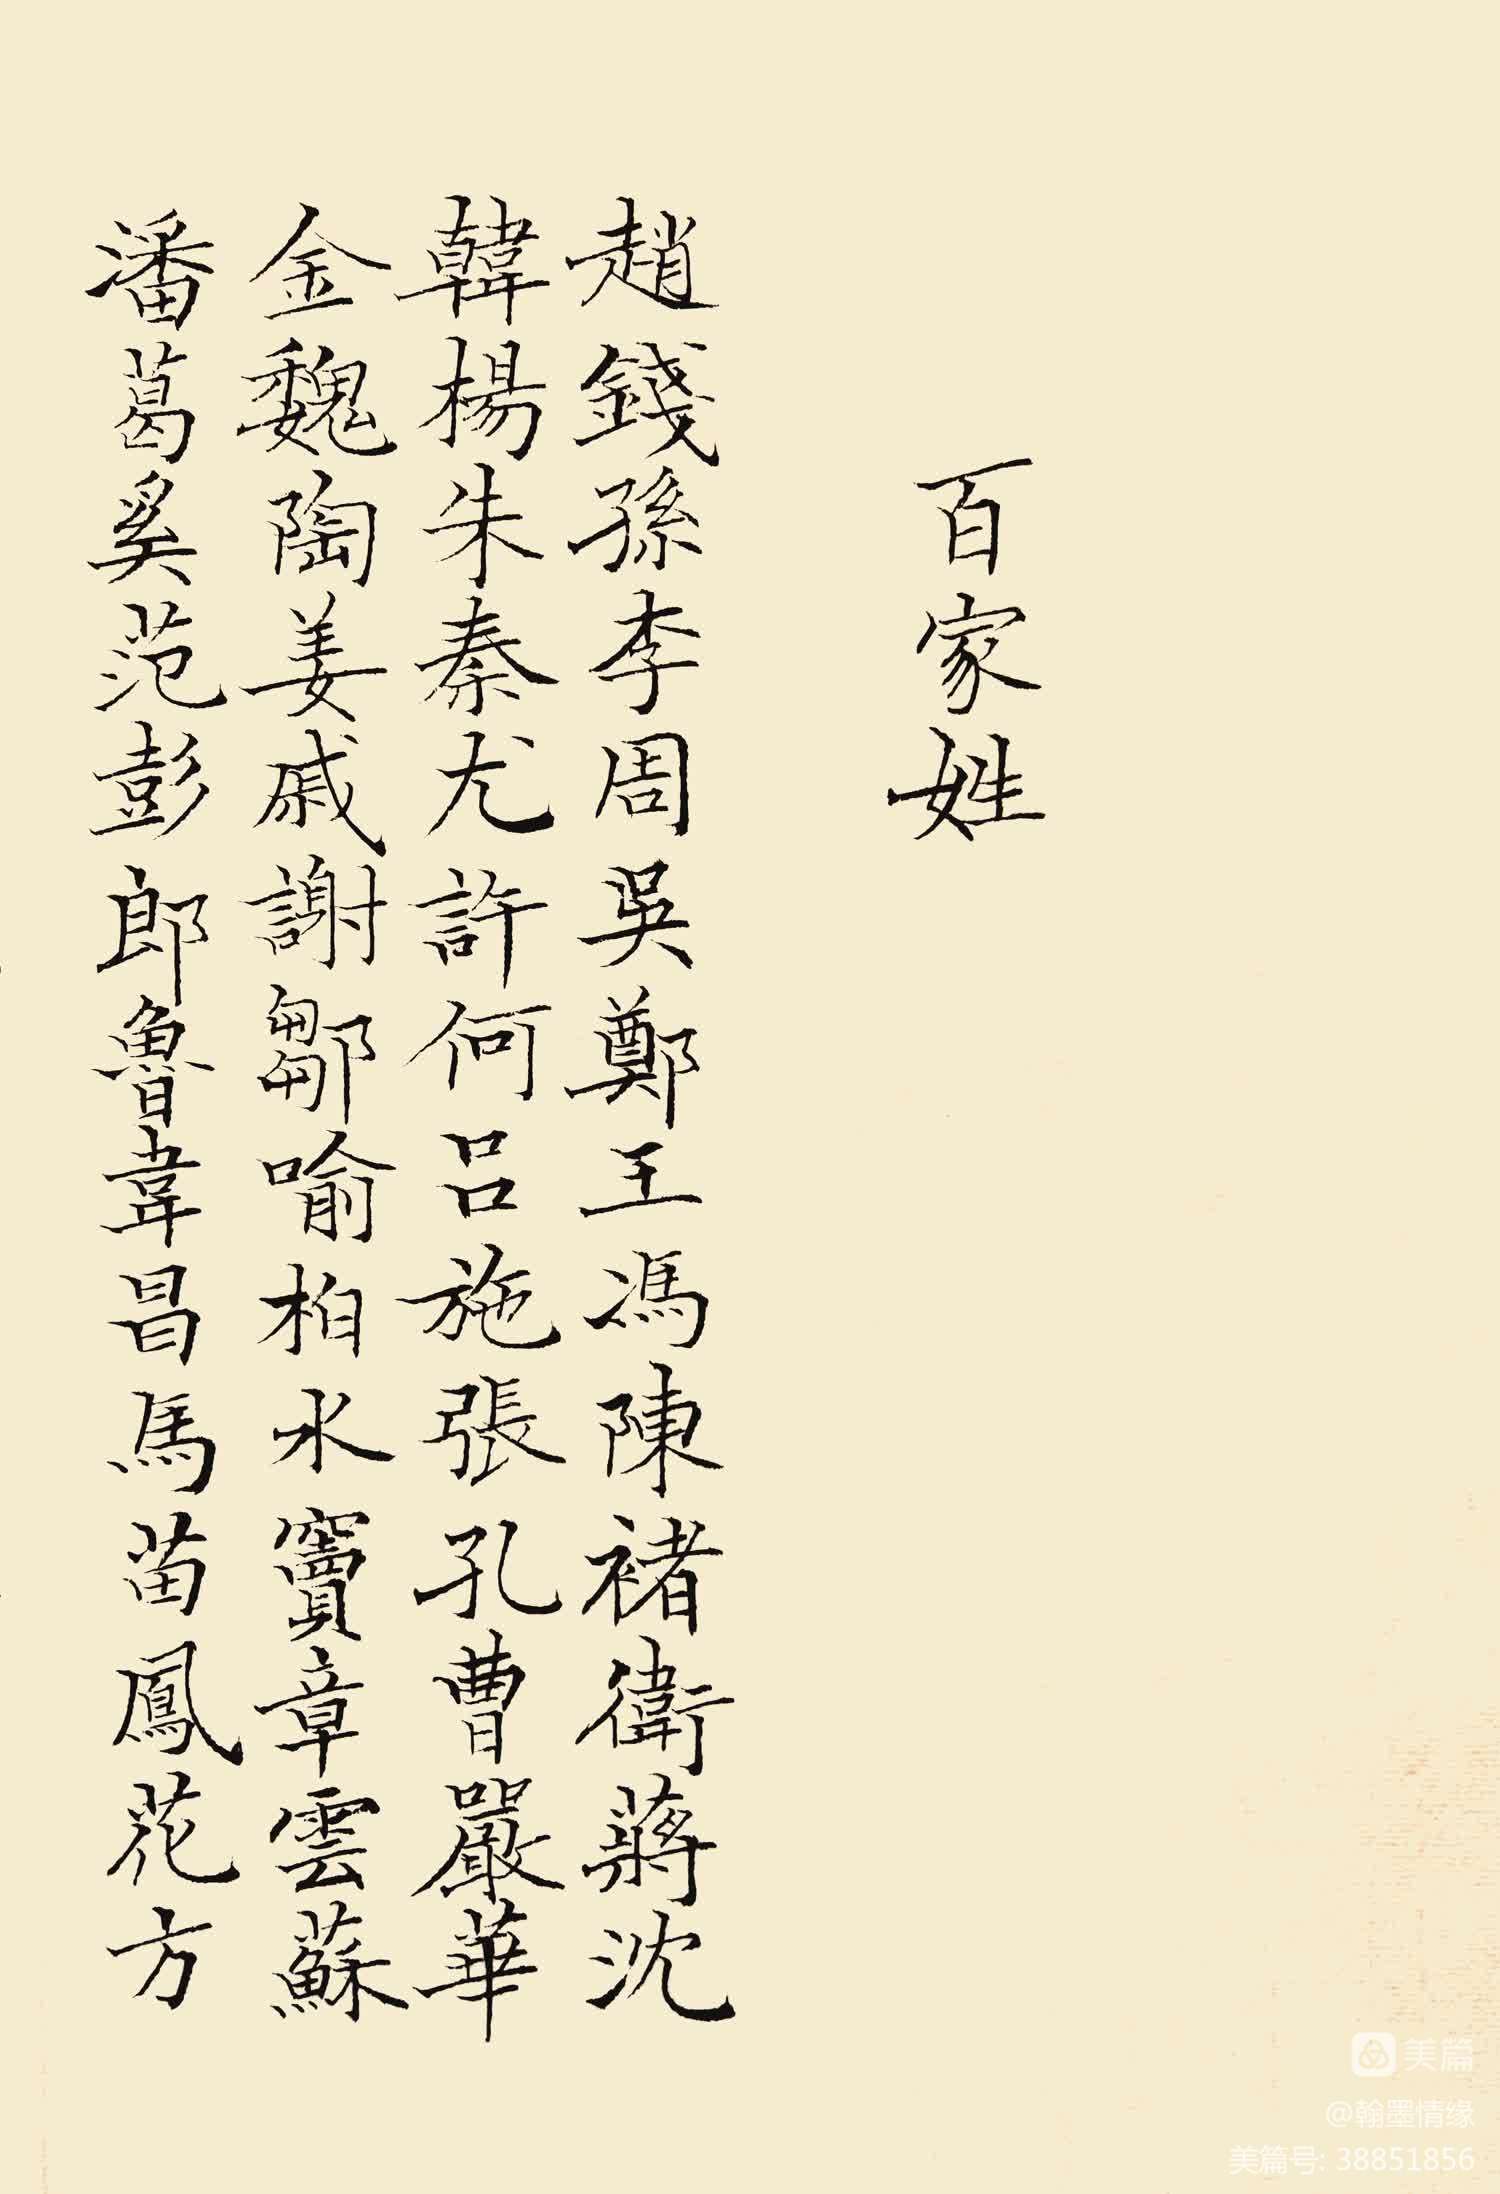 百家姓
趙錢孫李周吳鄭王馮陳褚衛蔣沈
韓楊朱秦尤許何呂施張孔曹嚴華
金魏陶姜戚謝鄒喻柏水竇章雲蘇
潘葛奚范彭郎魯韋昌馬苗鳳花方
美篇
@翰墨情缘
美篇号: 38851856